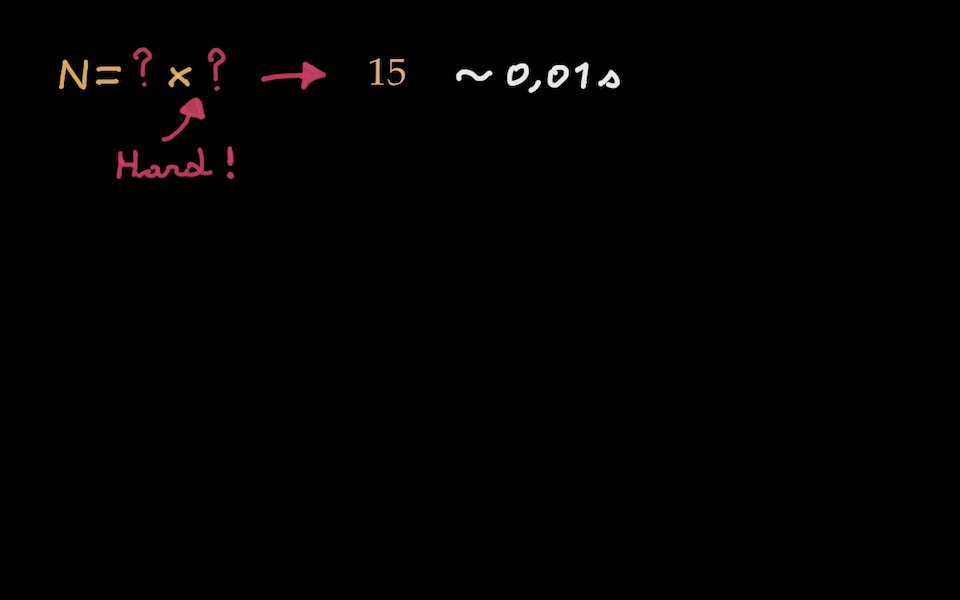 N = ? × ? → 15 ~ 0,01 s
Hard !